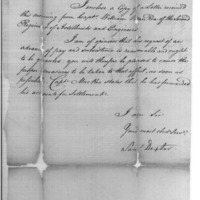 I enclose a Copy of a Letter received
this morning from Capt. William
Regiment of Artillerists and Engineers
I am of opinion that his request of an
advance of pay and subsistence is reasonable and ought
to be granted; you will therefore be pleased to cause the
proper measures to be taken to that effect, as soon as
Capt. states that he has forwarded
his accounts for Settlement.
I am Sir
Your most obed. Serv.
Sam. Dexter